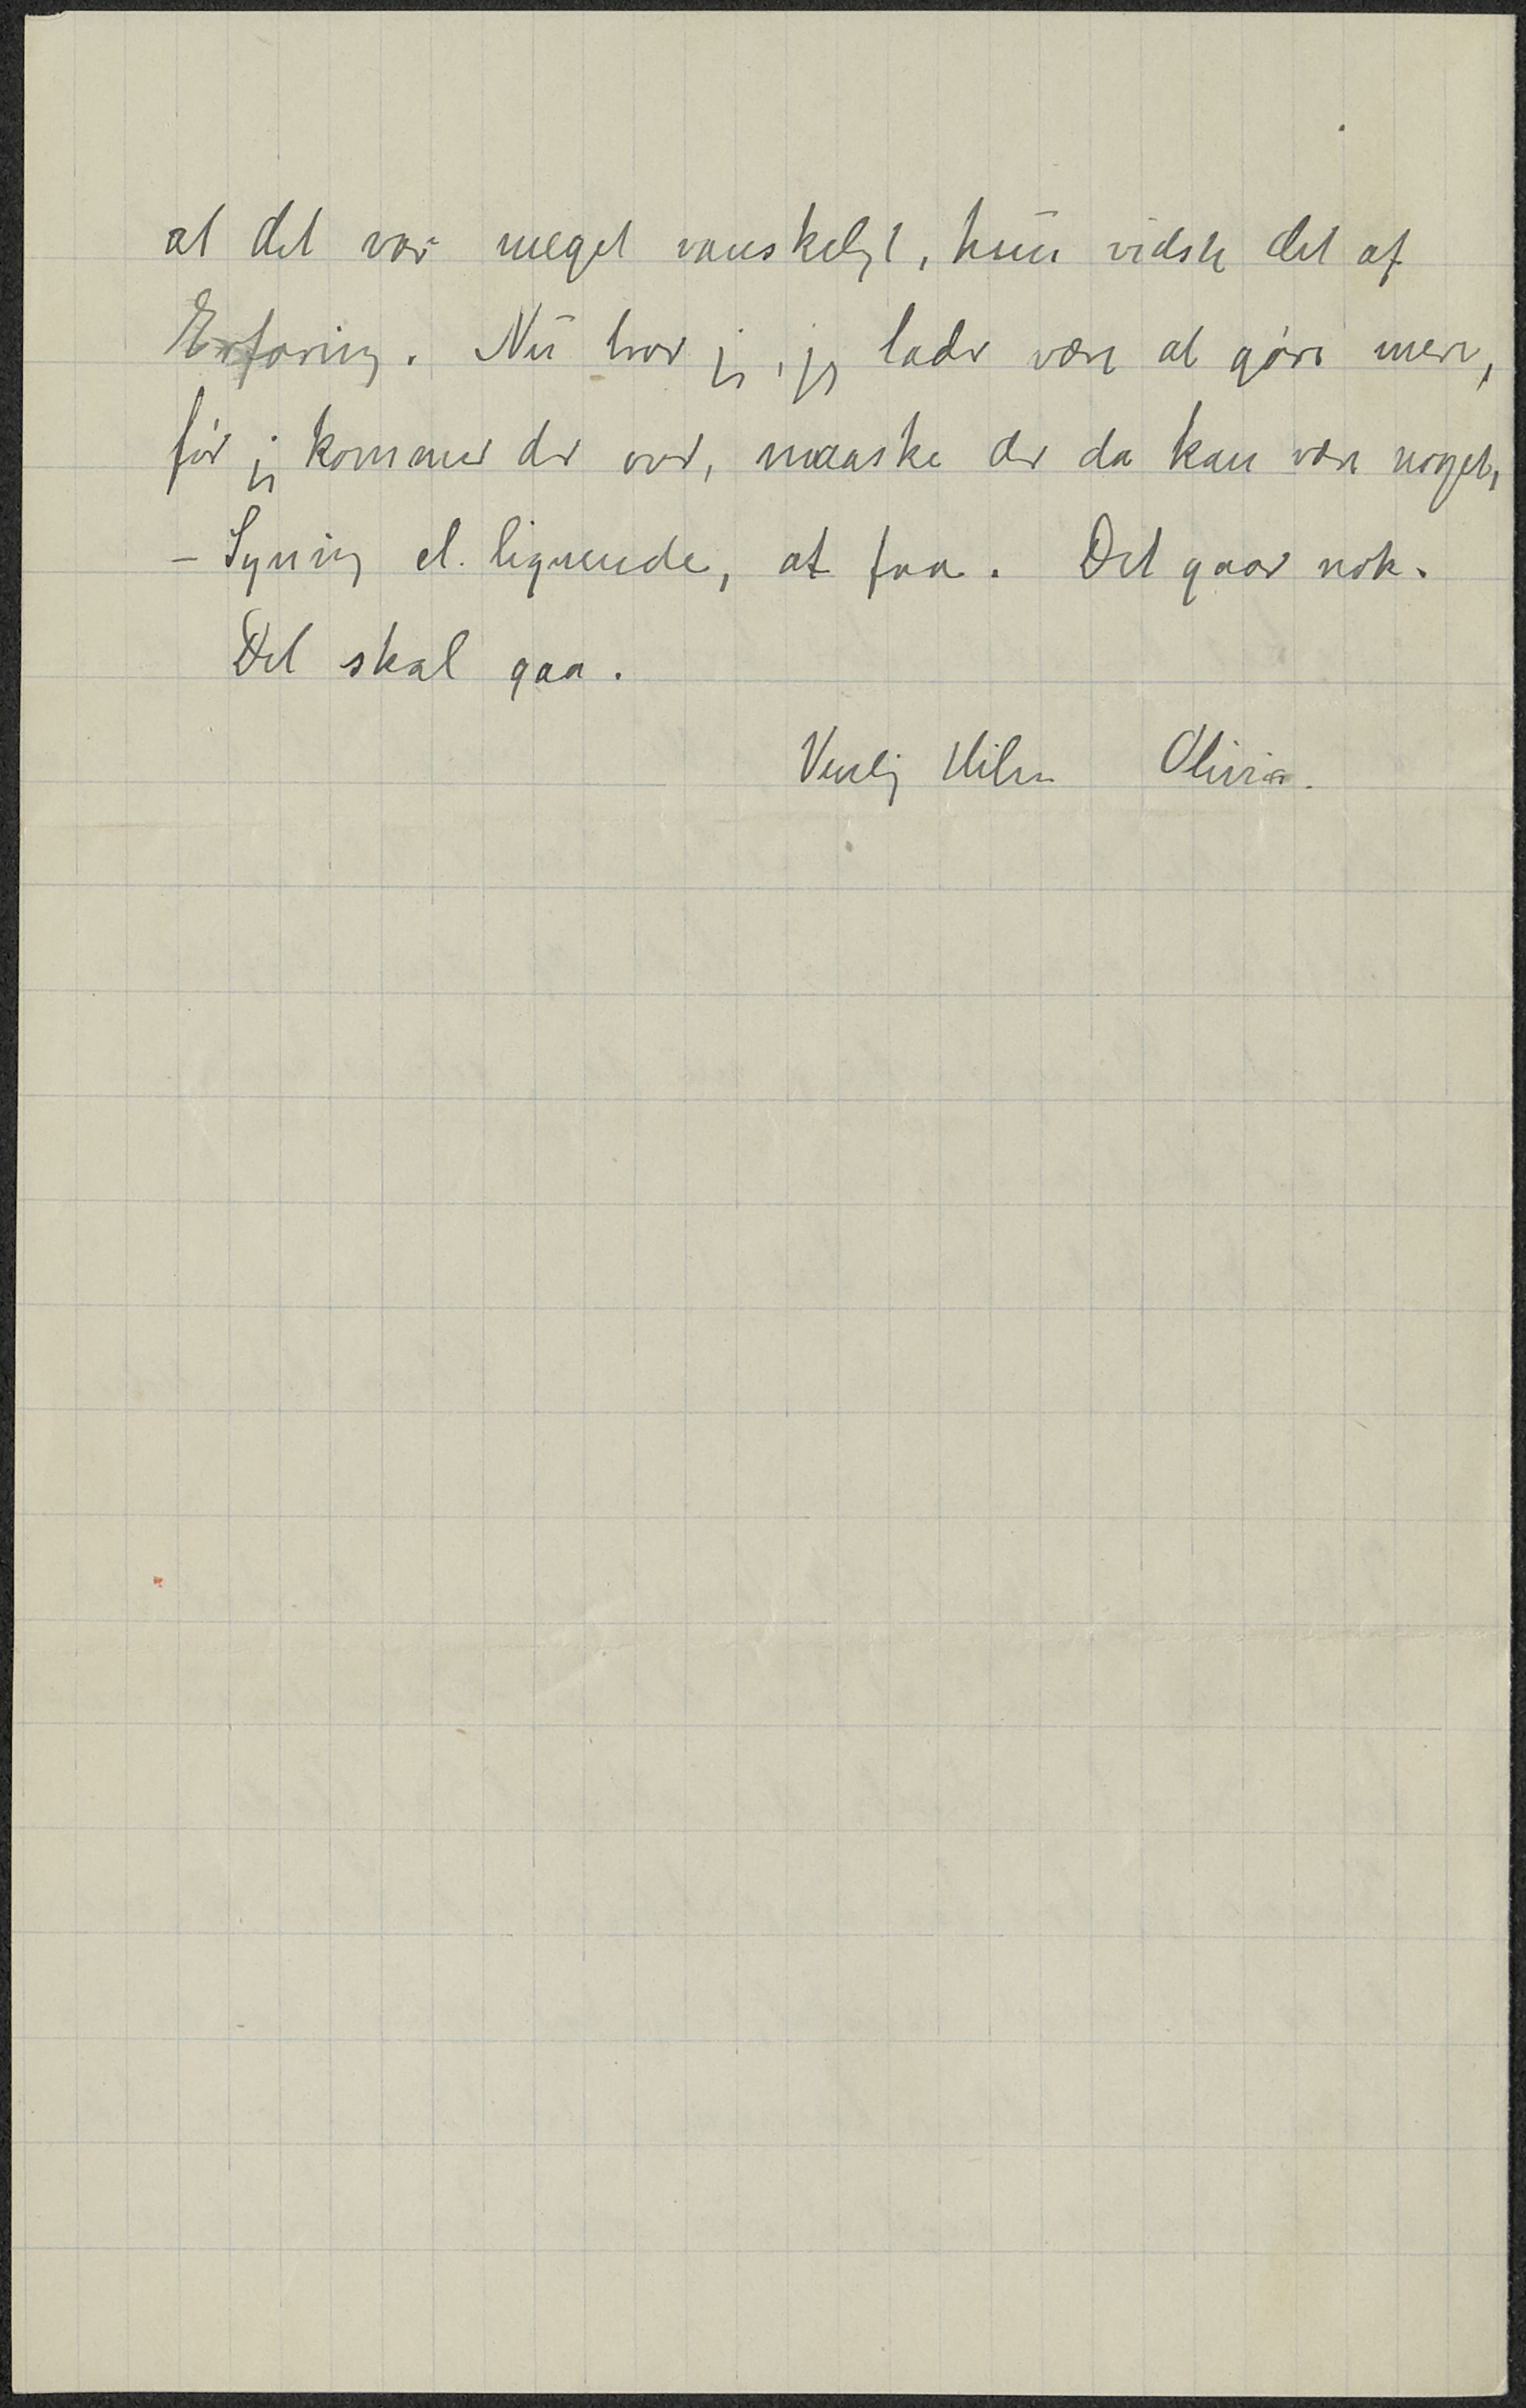 at det var meget vanskeligt, hun vidste det af
Erfaring. Nu tror jeg, jeg lader være at gøre mere,
før jeg kommer der over, maaske der da kan være noget,
– Syning el. lignende, at faa. Det gaar nok.
Det skal gaa.
Venlig Hilsen Olivia.